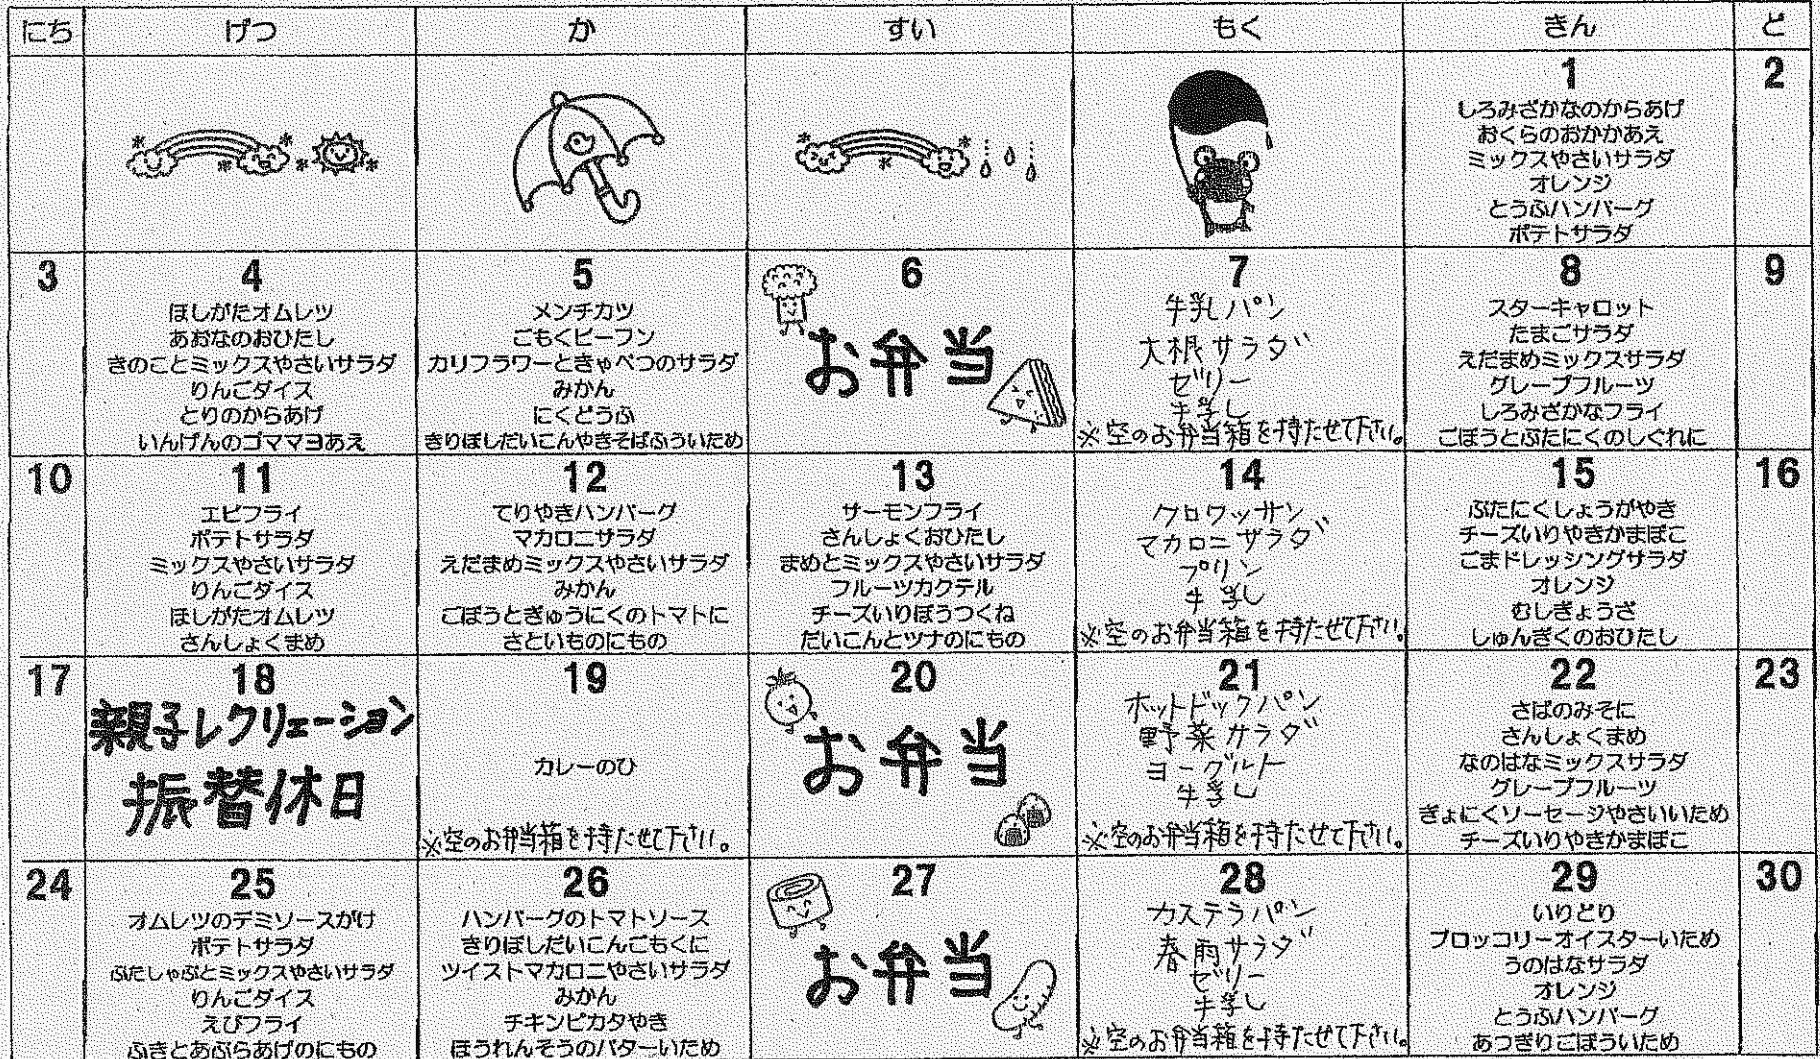 にち げつ か すい もく きん ど
1
しろみざかなのからあげ
おくらのおかかあえ
ミックスやさいサラダ
オレンジ
とうふハンバーグ
ポテトサラダ
2
3
4
ほしがたオムレツ
あおなのおひたし
きのことミックスやさいサラダ
りんごダイス
とりのからあげ
いんげんのゴママヨあえ
5
メンチカツ
ごもくビーフン
カリフラワーときゃべつのサラダ
みかん
にくどうふ
きりぼしだいこんやきそばふういため
6
お弁当
7
牛乳パン
大根サラダ
ゼリー
牛乳
※空のお弁当箱を持たせて下さい。
8
スターキャロット
たまごサラダ
えだまめミックスサラダ
グレープフルーツ
しろみざかなフライ
ごぼうとぶたにくのしぐれに
9
10
11
エビフライ
ポテトサラダ
ミックスやさいサラダ
りんごダイス
ほしがたオムレツ
さんしょくまめ
12
てりやきハンバーグ
マカロニサラダ
えだまめミックスやさいサラダ
みかん
ごぼうとぎゅうにくのトマトに
さといものにもの
13
サーモンフライ
さんしょくおひたし
まめとミックスやさいサラダ
フルーツカクテル
チーズいりぼうつくね
だいこんとツナのにもの
14
クロワッサン
マカロニサラダ
プリン
牛乳
※空のお弁当箱を持たせて下さい。
15
ぶたにくしょうがやき
チーズいりやきかまぼこ
ごまドレッシングサラダ
オレンジ
むしぎょうざ
しゅんぎくのおひたし
16
17
18
親子レクリエーション
振替休日
19
カレーのひ
※空のお弁当箱を持たせて下さい。
20
お弁当
21
ホットドックパン
野菜サラダ
ヨーグルト
牛乳
※空のお弁当箱を持たせて下さい。
22
さばのみそに
さんしょくまめ
なのはなミックスサラダ
グレープフルーツ
ぎょにくソーセージやさいいため
チーズいりやきかまぼこ
23
24
25
オムレツのデミソースがけ
ポテトサラダ
ぶたしゃぶとミックスやさいサラダ
りんごダイス
えびフライ
ふきとあぶらあげのにもの
26
ハンバーグのトマトソース
きりぼしだいこんごもくに
ツイストマカロニやさいサラダ
みかん
チキンピカタやき
ほうれんそうのバターいため
27
お弁当
28
カステラパン
春雨サラダ
ゼリー
牛乳
※空のお弁当箱を持たせて下さい。
29
いりどり
ブロッコリーオイスターいため
うのはなサラダ
オレンジ
とうふハンバーグ
あつぎりごぼういため
30